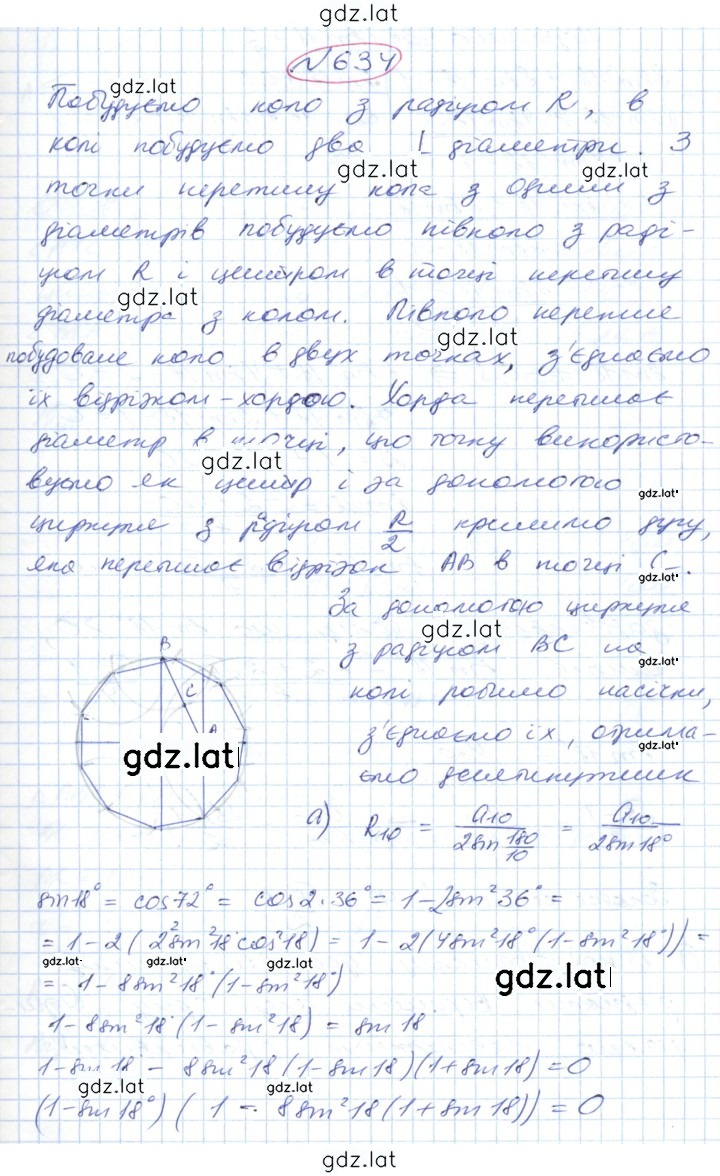 gdz.lat
№634
gdz.lat
Побудуємо коло з радіусом R, в
колі побудуємо два ⊥ діаметри. З
gdz.lat gdz.lat
точки перетину кола з одним з
діаметрів побудуємо півколо з раді-
усом R і центром в точці перетину
gdz.lat
діаметра з колом. Півколо перетне
gdz.lat
побудоване коло в двух точках, з'єднаємо
їх відрізком-хордою. Хорда перетинає
діаметр в точці, цю точку використо-
gdz.lat
вуємо як центр і за допомогою
gdz.lat
циркуля з радіусом R/2 креслимо дугу,
яка перетинає відрізок AB в точці C.
gdz.lat
За допомогою циркуля
gdz.lat
з радіусом BC на
gdz.lat
колі робимо насічки,
з'єднаємо їх, отрима-
gdz.lat
ємо десятикутник
B
C
A
gdz.lat
а) R₁₀ = a₁₀/(2sin 180/10) = a₁₀/(2sin18°)
sin18° = cos72° = cos2·36° = 1-2sin²36° =
= 1-2(2²sin²18°cos²18) = 1-2(4sin²18°(1-sin²18°)) =
gdz.lat gdz.lat gdz.lat
= 1-8sin²18°(1-sin²18°)
gdz.lat
1-8sin²18°(1-sin²18) = sin18
1-sin18 - 8sin²18(1-sin18)(1+sin18) = 0
gdz.lat gdz.lat
(1-sin18°)(1-8sin²18(1+sin18)) = 0
gdz.lat